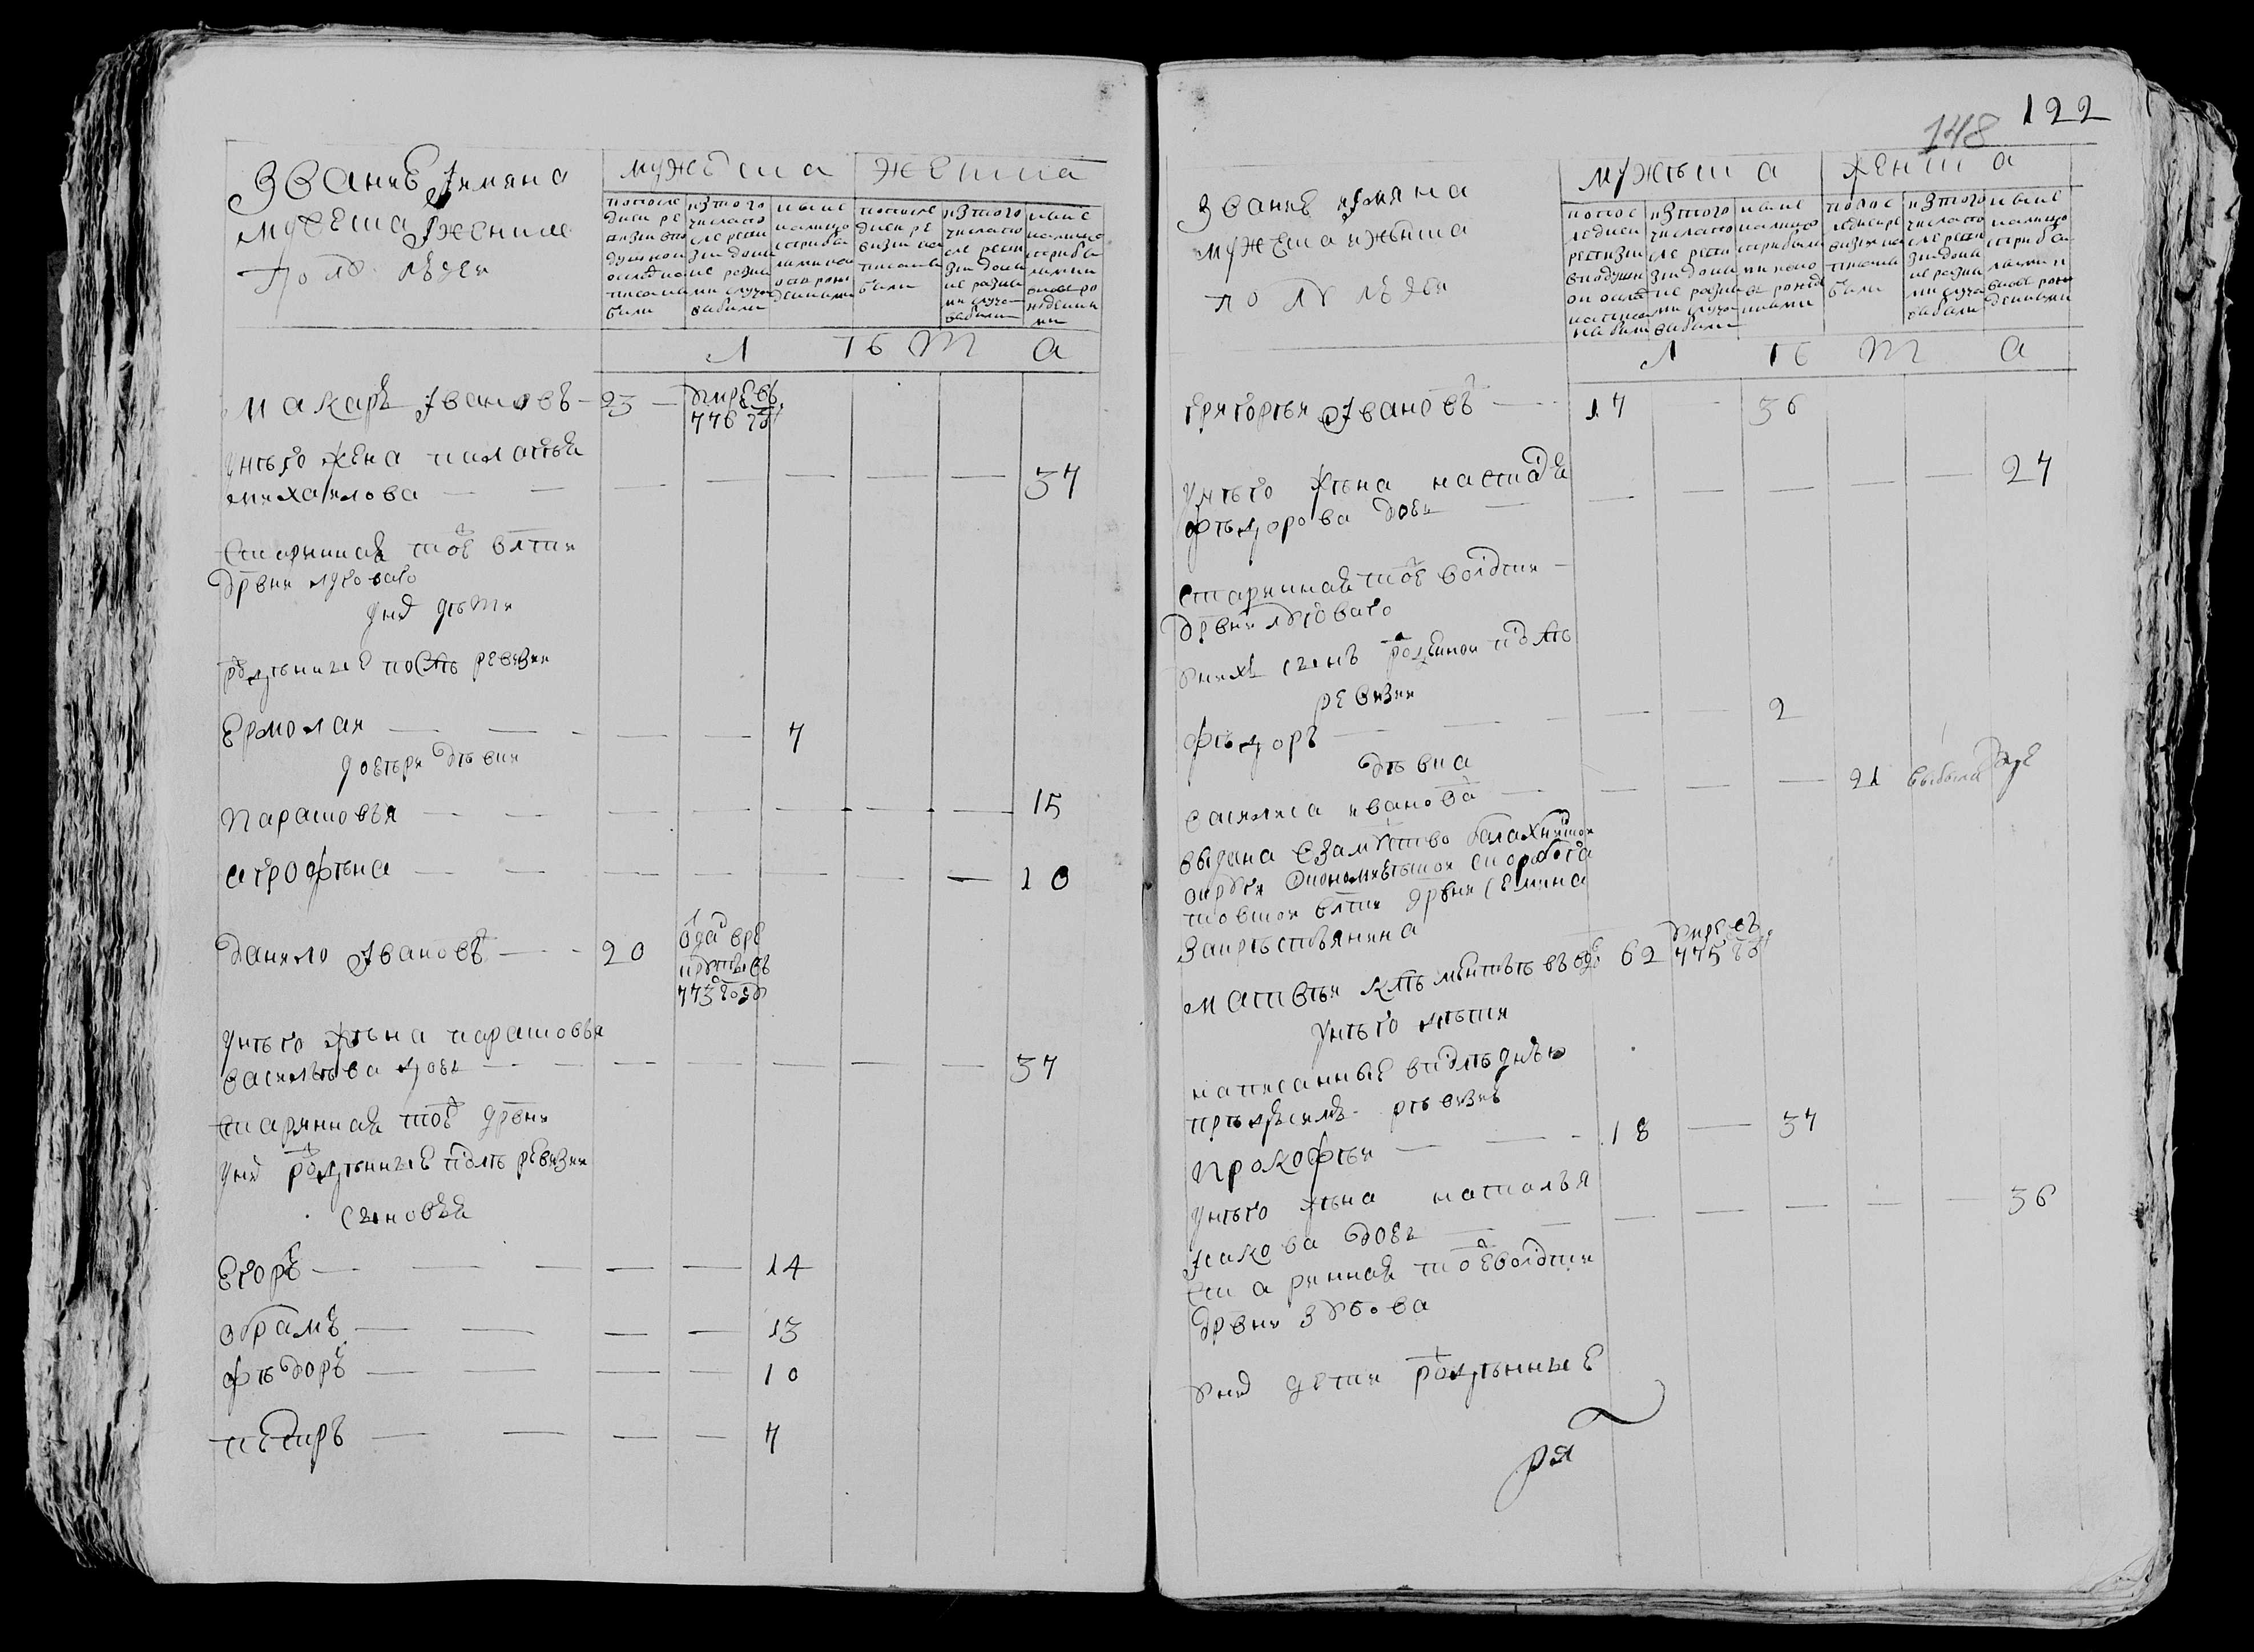 Звание имена
мужеска и женска
полу людей
мужеска
женска
по последней ревизии в подушной оклад написаны были
из того числа после ревизии до ныне разными случаи выбыли
ныне налицо с прибылыми и вновь рожденными
по последней ревизии написаны были
из того числа после ревизии до ныне разными случаи выбыли
ныне налицо с прибылыми и вновь рожденными
лѣта
Макаръ Ивановъ — 23 — умре въ
776 году
У него жена
Михайлова — — — — — — — — 37
старинная тое влти
дрвни лугового
У них дѣти
рожденные после ревизии
Ермолай — — — — — 7
дочери девки
Парасковья — — — — — — — — 15
Агрофена — — — — — — — — 10
Данило Ивановъ — — 20
отдан в ре
круты въ
773 году
У него жена Парасковья
Васильева дочь — — — — — — — 37
старинная тое дрвни
У них рожденные после ревизии
сыновья
Егоръ — — — — — 14
Обрамъ — — — — 13
Федоръ — — — — — 10
Петръ — — — — 7
148 122
Звание имяна
мужеска и женска
полу людей
мужеска
женска
по последней ревизии в подушной оклад написаны были
из того числа после ревизии до ныне разными случаи выбыли
ныне налицо с прибылыми и вновь рожденными
по последней ревизии написаны были
из того числа после ревизии до ныне разными случаи выбыли
ныне налицо с прибылыми и вновь рожденными
лѣта
Григорей Ивановъ — 17 — 36
У него жена Настасья
Федорова дочь — — — — — — 27
старинная тое волости
дрвни лугового
У них сынъ рожденной после
ревизии
Федоръ — — — — — 2
девка
Василиса Иванова — — — — — 21 выбыла
выдана в замужство Балахнинской
округи
влти дрвни Семина
за крестьянина
Матвей Клементьевъ 62 умре въ
775 году
У него дети
написанные в последнюю
пред сим ревизию
Прокофей — — — 18 — 37
У него жена Наталья
Исакова дочь — — — — — — — 36
старинная тое волости
дрвни Зубова
У них дети рожденные